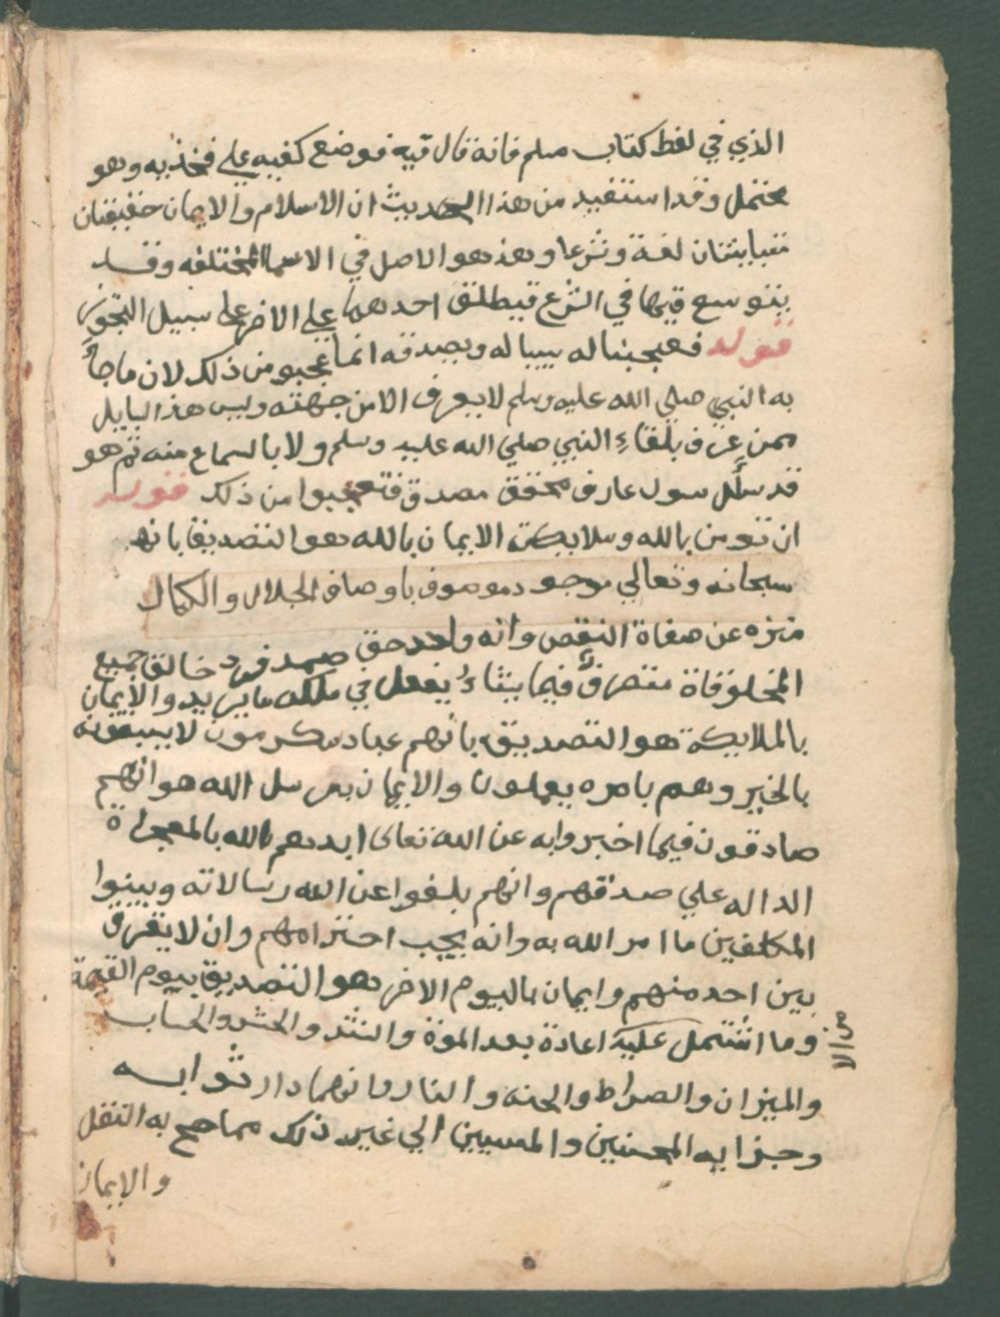 الذي في لفظ كتاب مسلم فانه قال فيه فوضع كفيه علي فخذيه وهو
محتمل وقد استفيد من هذا الحديث ان الاسلام والايمان حقيقتان
متباينتان لغة وشرعا وهذ هو الاصل في الاسما المختلفه وقد
يتوسع فيها في الشرع فيطلق احدهما علي الاخر علي سبيل التجوز
قوله فعجبنا له يساله ويصدقه انما عجبو من ذلك لان ما جأ
به النبي صلي الله عليه وسلم لا يعرف الا من جهته وليس هذا السايل
ممن عرف بلقاء النبي صلي الله عليه وسلم ولا بالسماع منه ثم هو
قد سأل سول عارف محقق مصدق فتعجبوا من ذلك قوله
ان تومن بالله وملايكته الايمان بالله هو التصديق بانه
سبحانه وتعالي موجود موصوف باوصاف الجلال والكمال
منزه عن صفاة النقص وانه واحد حق صمد فرد خالق جميع
المخلوقاة متصرف فيما يشاء يفعل في ملكه ما يريد والايمان
بالملايكة هو التصديق بانهم عباد مكرمون لا يسبقونه
بالخير وهم بامره يعملون والايمان برسل الله هو انهم
صادقون فيما اخبروا به عن الله تعالى ايدهم الله بالمعجزاة
الداله علي صدقهم وانهم بلغوا عن الله رسالاته وبينوا
المكلفين ما امر الله به وانه يجب احترامهم وان لا يفرق
بين احد منهم وايمان باليوم الاخر هو التصديق بيوم القيمة
وما اشتمل عليه اعادة بعد الموة والنشر والحشر والحساب
من الا
والميزان والصراط والجنه والنار وانهما دار ثوابه
وجزايه المحسنين والمسيين الي غير ذلك مما صح به النقل
والايمان